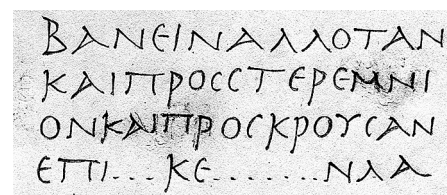 ΒΑΝΕΙΝΑΛΛΟΤΑΝ
ΚΑΙΠΡΟϹϹΤΕΡΕΜΝΙ
ΟΝΚΑΙΠΡΟϹΚΡΟΥϹΑΝ
ΕΠΙ...ΚΕ........ΝΛΑ